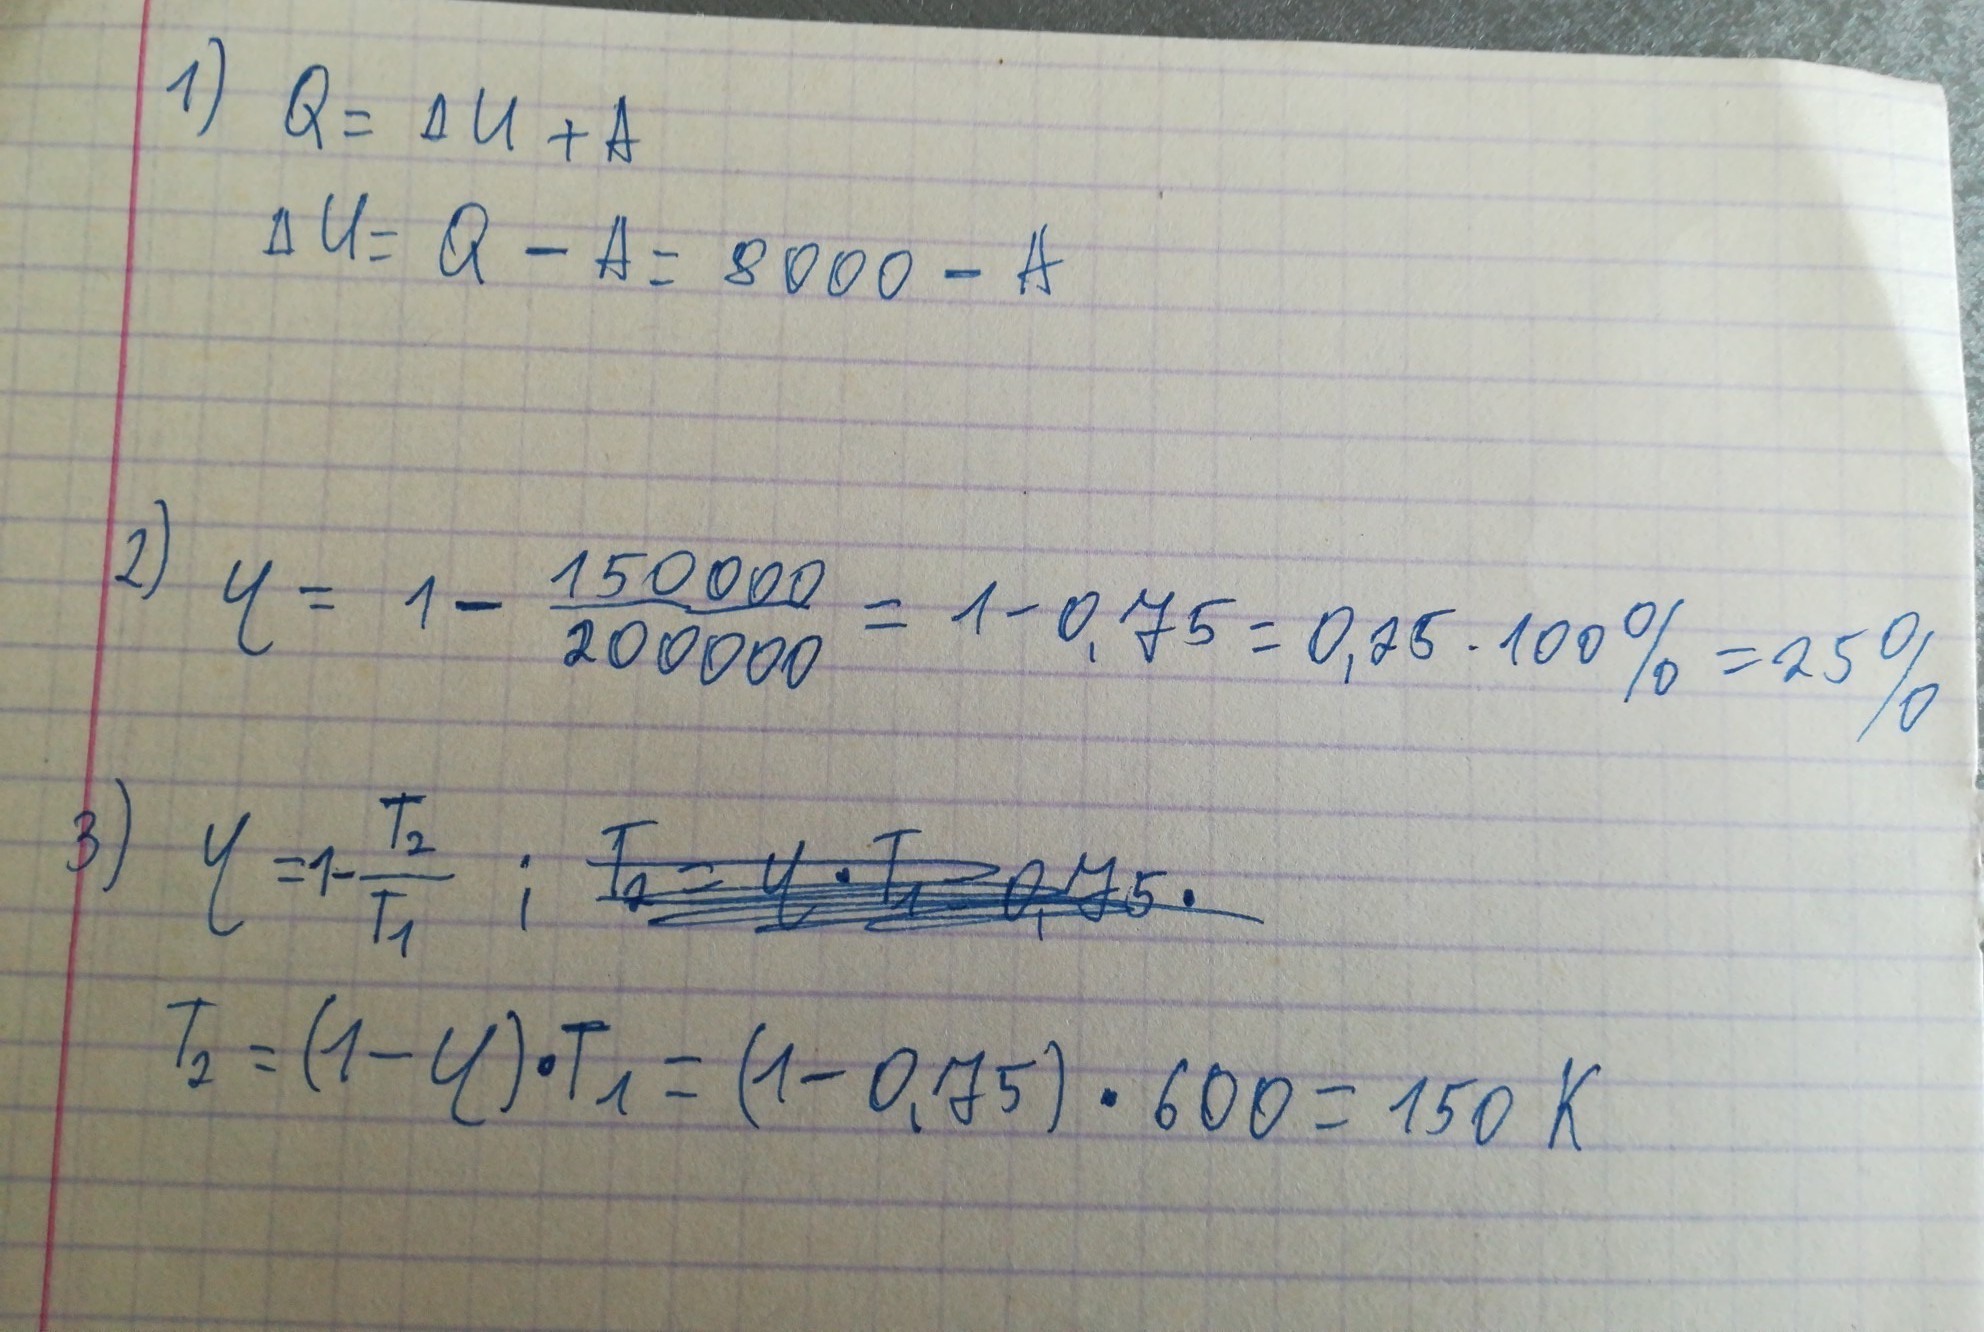 1) Q = ΔU + A
ΔU = Q - A = 8000 - A
2) η = 1 - 150000/200000 = 1 - 0,75 = 0,25 · 100% = 25%
3) η = 1 - T₂/T₁ ; T₂ = η · T₁ = 0,75 ·
T₂ = (1 - η) · T₁ = (1 - 0,75) · 600 = 150 K